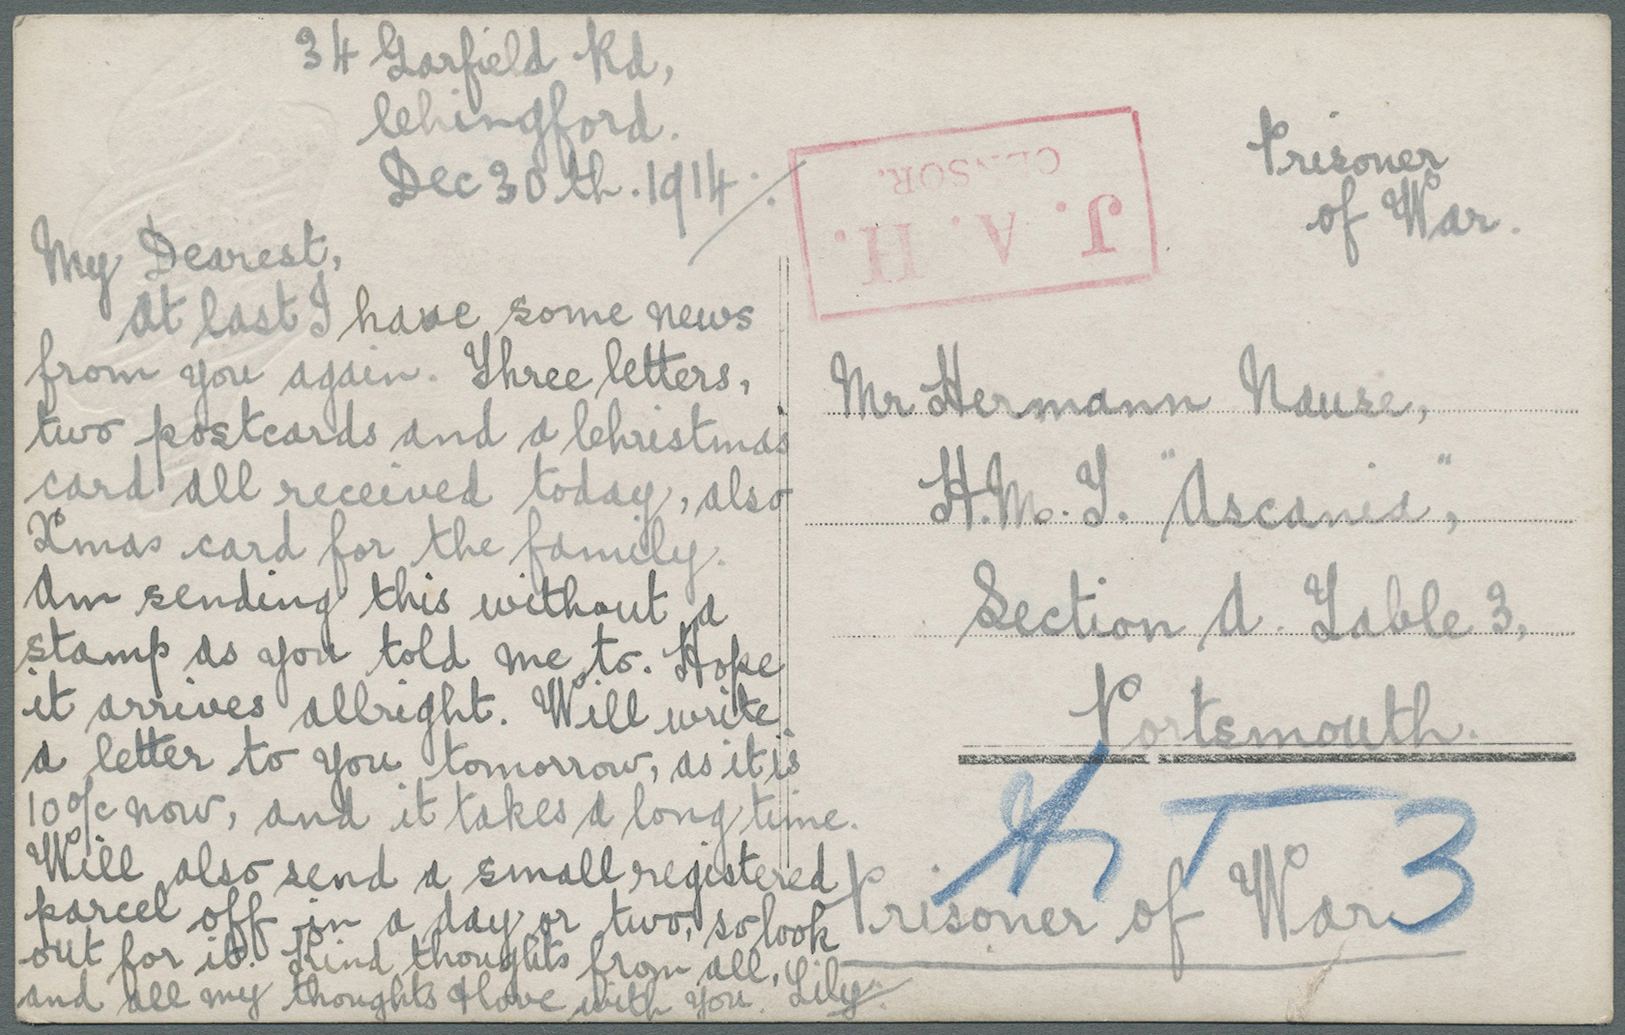 34 Garfield Rd,
Chingford.
Dec 30th. 1914.
My Dearest,
At last I have some news
from you again. Three letters,
two postcards and a Christmas
card all received today, also
Xmas card for the family.
Am sending this without a
stamp as you told me to. Hope
it arrives allright. Will write
a letter to you tomorrow, as it is
10 o/c now, and it takes a long time.
Will also send a small registered
parcel off in a day or two, so look
out for it. Kind thoughts from all,
and all my thoughts & love with you. Lily.
J. A. H.
CENSOR.
Prisoner
of War.
Mr Hermann Nause,
H.M.T. "Ascania",
Section A. Table 3,
Portsmouth.
Prisoner of War
A T 3